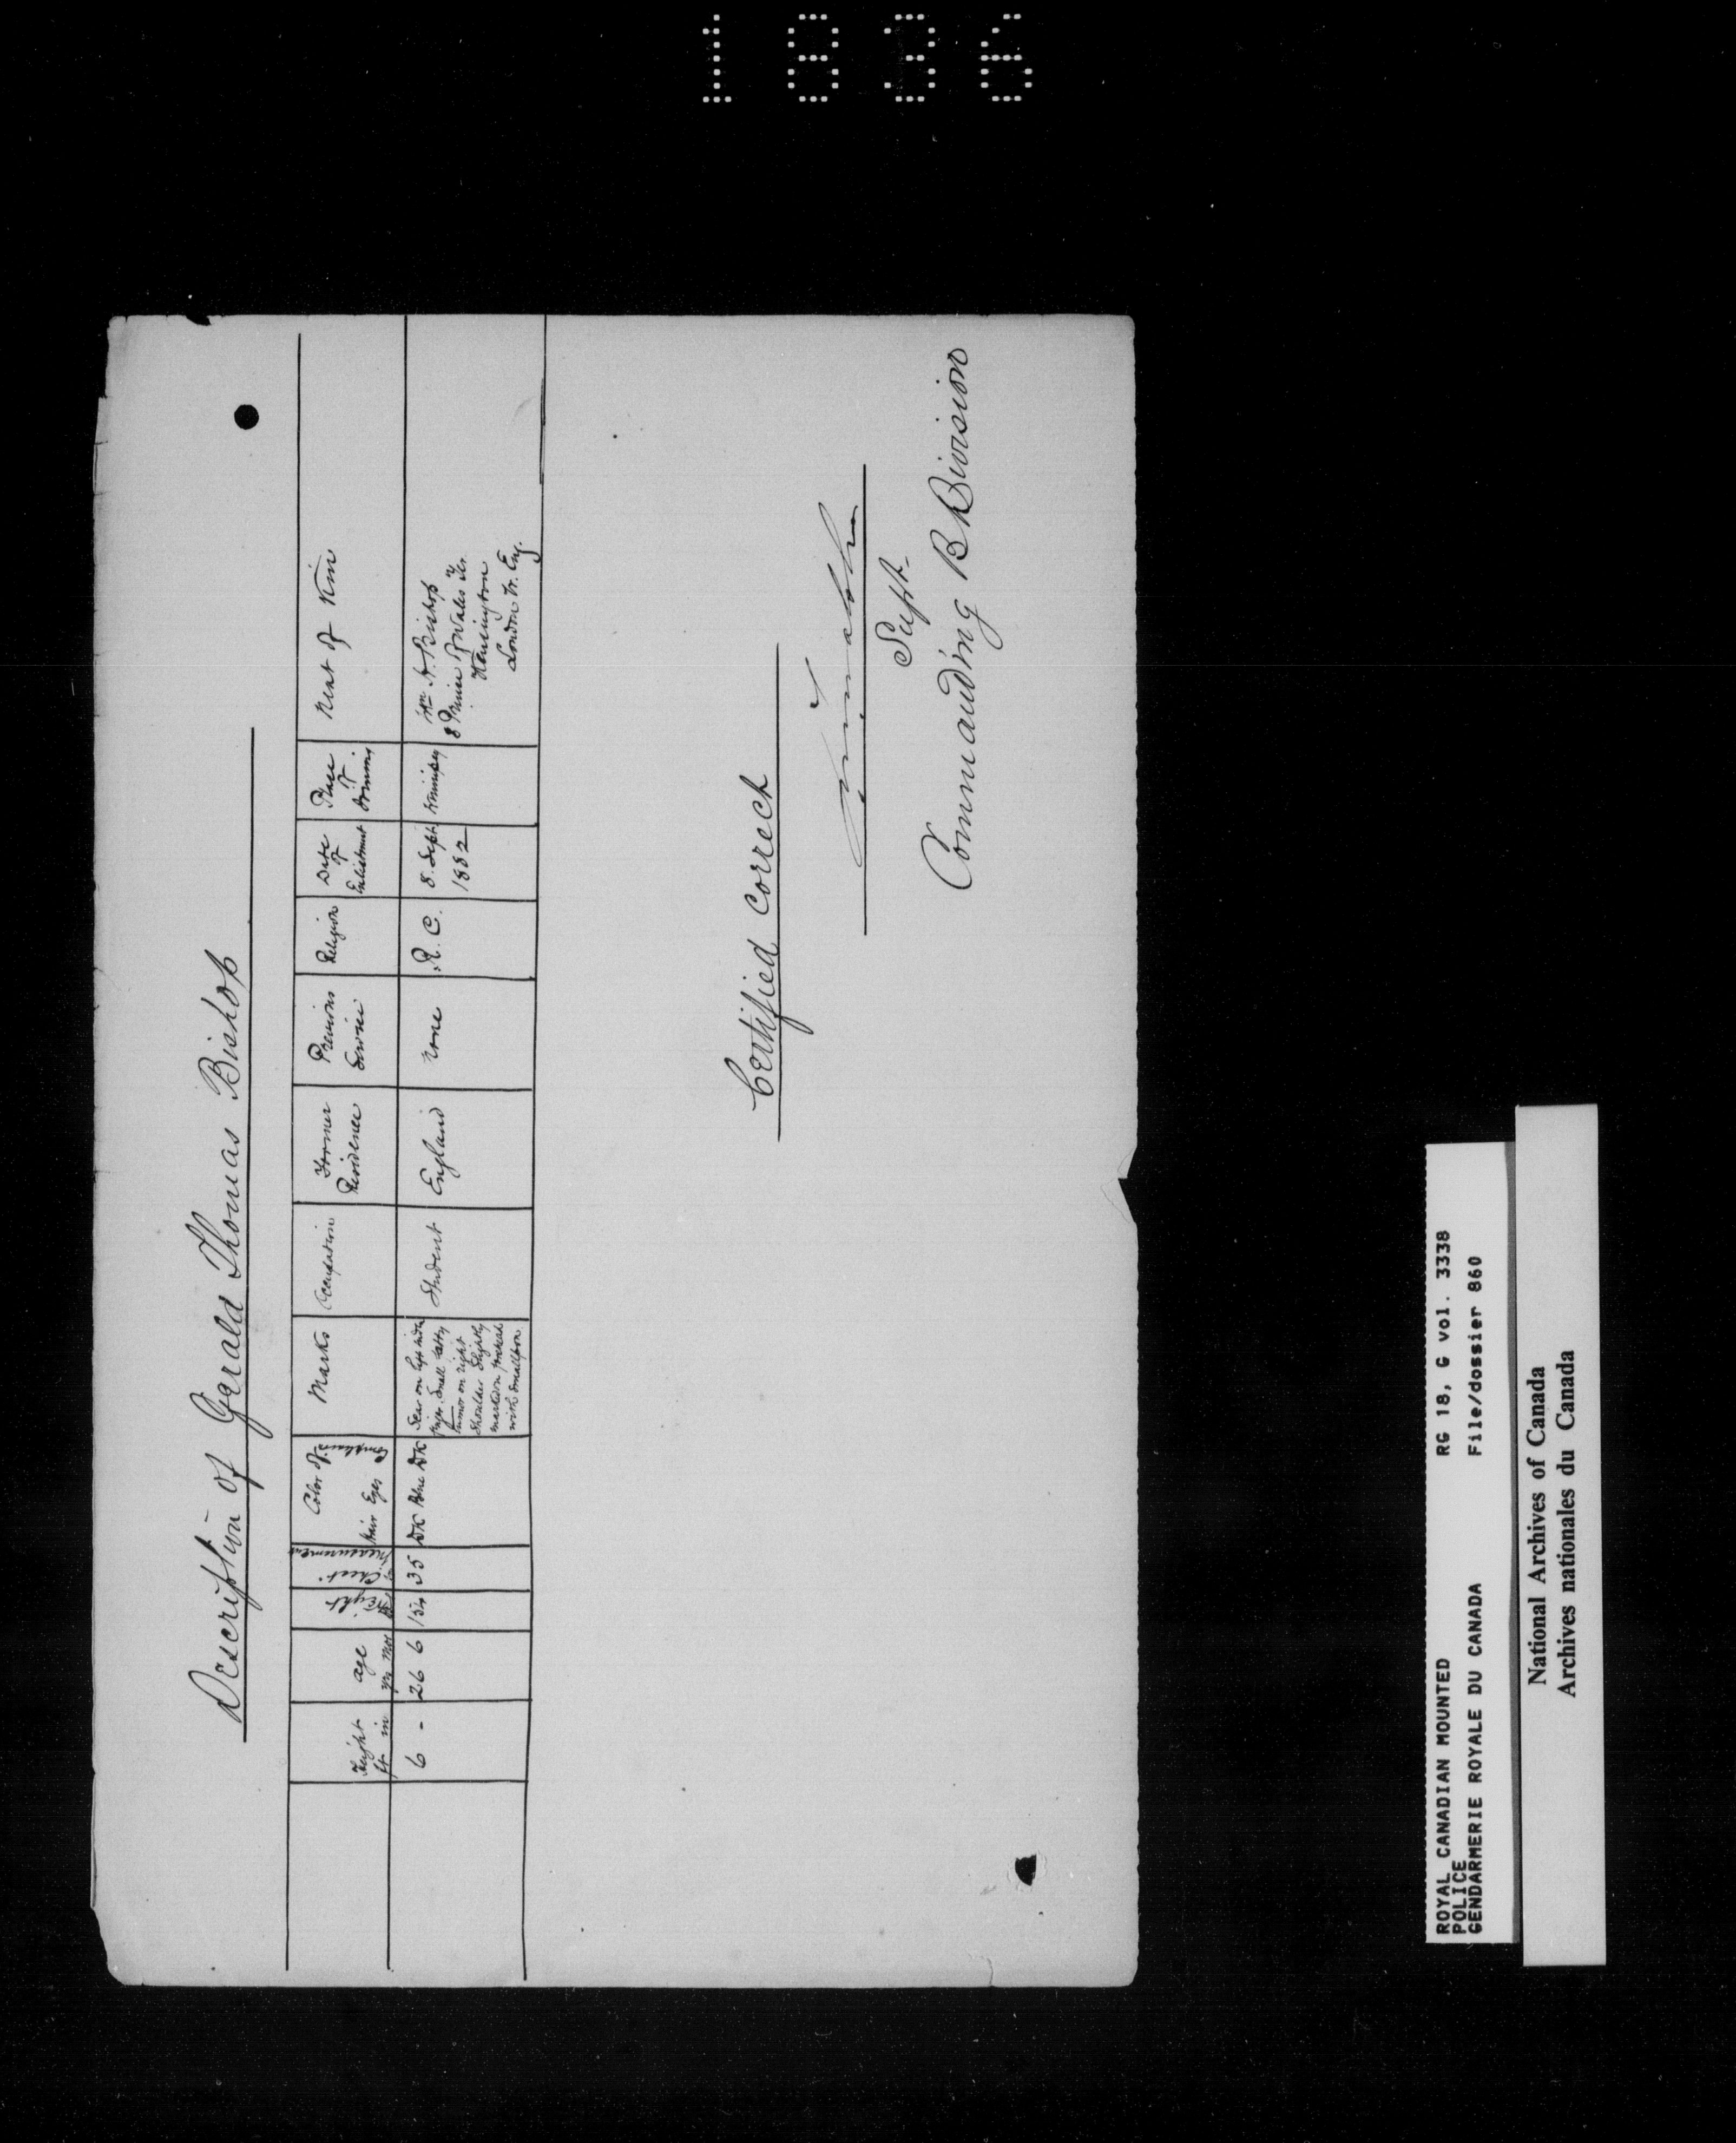 1836
Description of Gerald Thomas Bishop
Height
ft in
Age
Yrs Mos
Weight
Chest
Measurement
Color of
Hair Eyes Complexion
Marks
Occupation
Former
Residence
Previous
Service
Religion
Date
of
Enlistment
Place
of
Joining
Next of Kin
6 -
26 6
154
35
DK Blue DK
Scar on left index
finger. Small fatty
tumor on right
Shoulder Slightly
marked on forehead
with Smallpox
Student
England
none
R. C.
8. Sept
1882
Winnipeg
A. Bishop
8 Prince of Wales Tr.
Kensington
London Eng.
Certified Correct
Supt
Commanding B Division
ROYAL CANADIAN MOUNTED RG 18, G vol. 3338
POLICE
GENDARMERIE ROYALE DU CANADA File/dossier 860
National Archives of Canada
Archives nationales du Canada